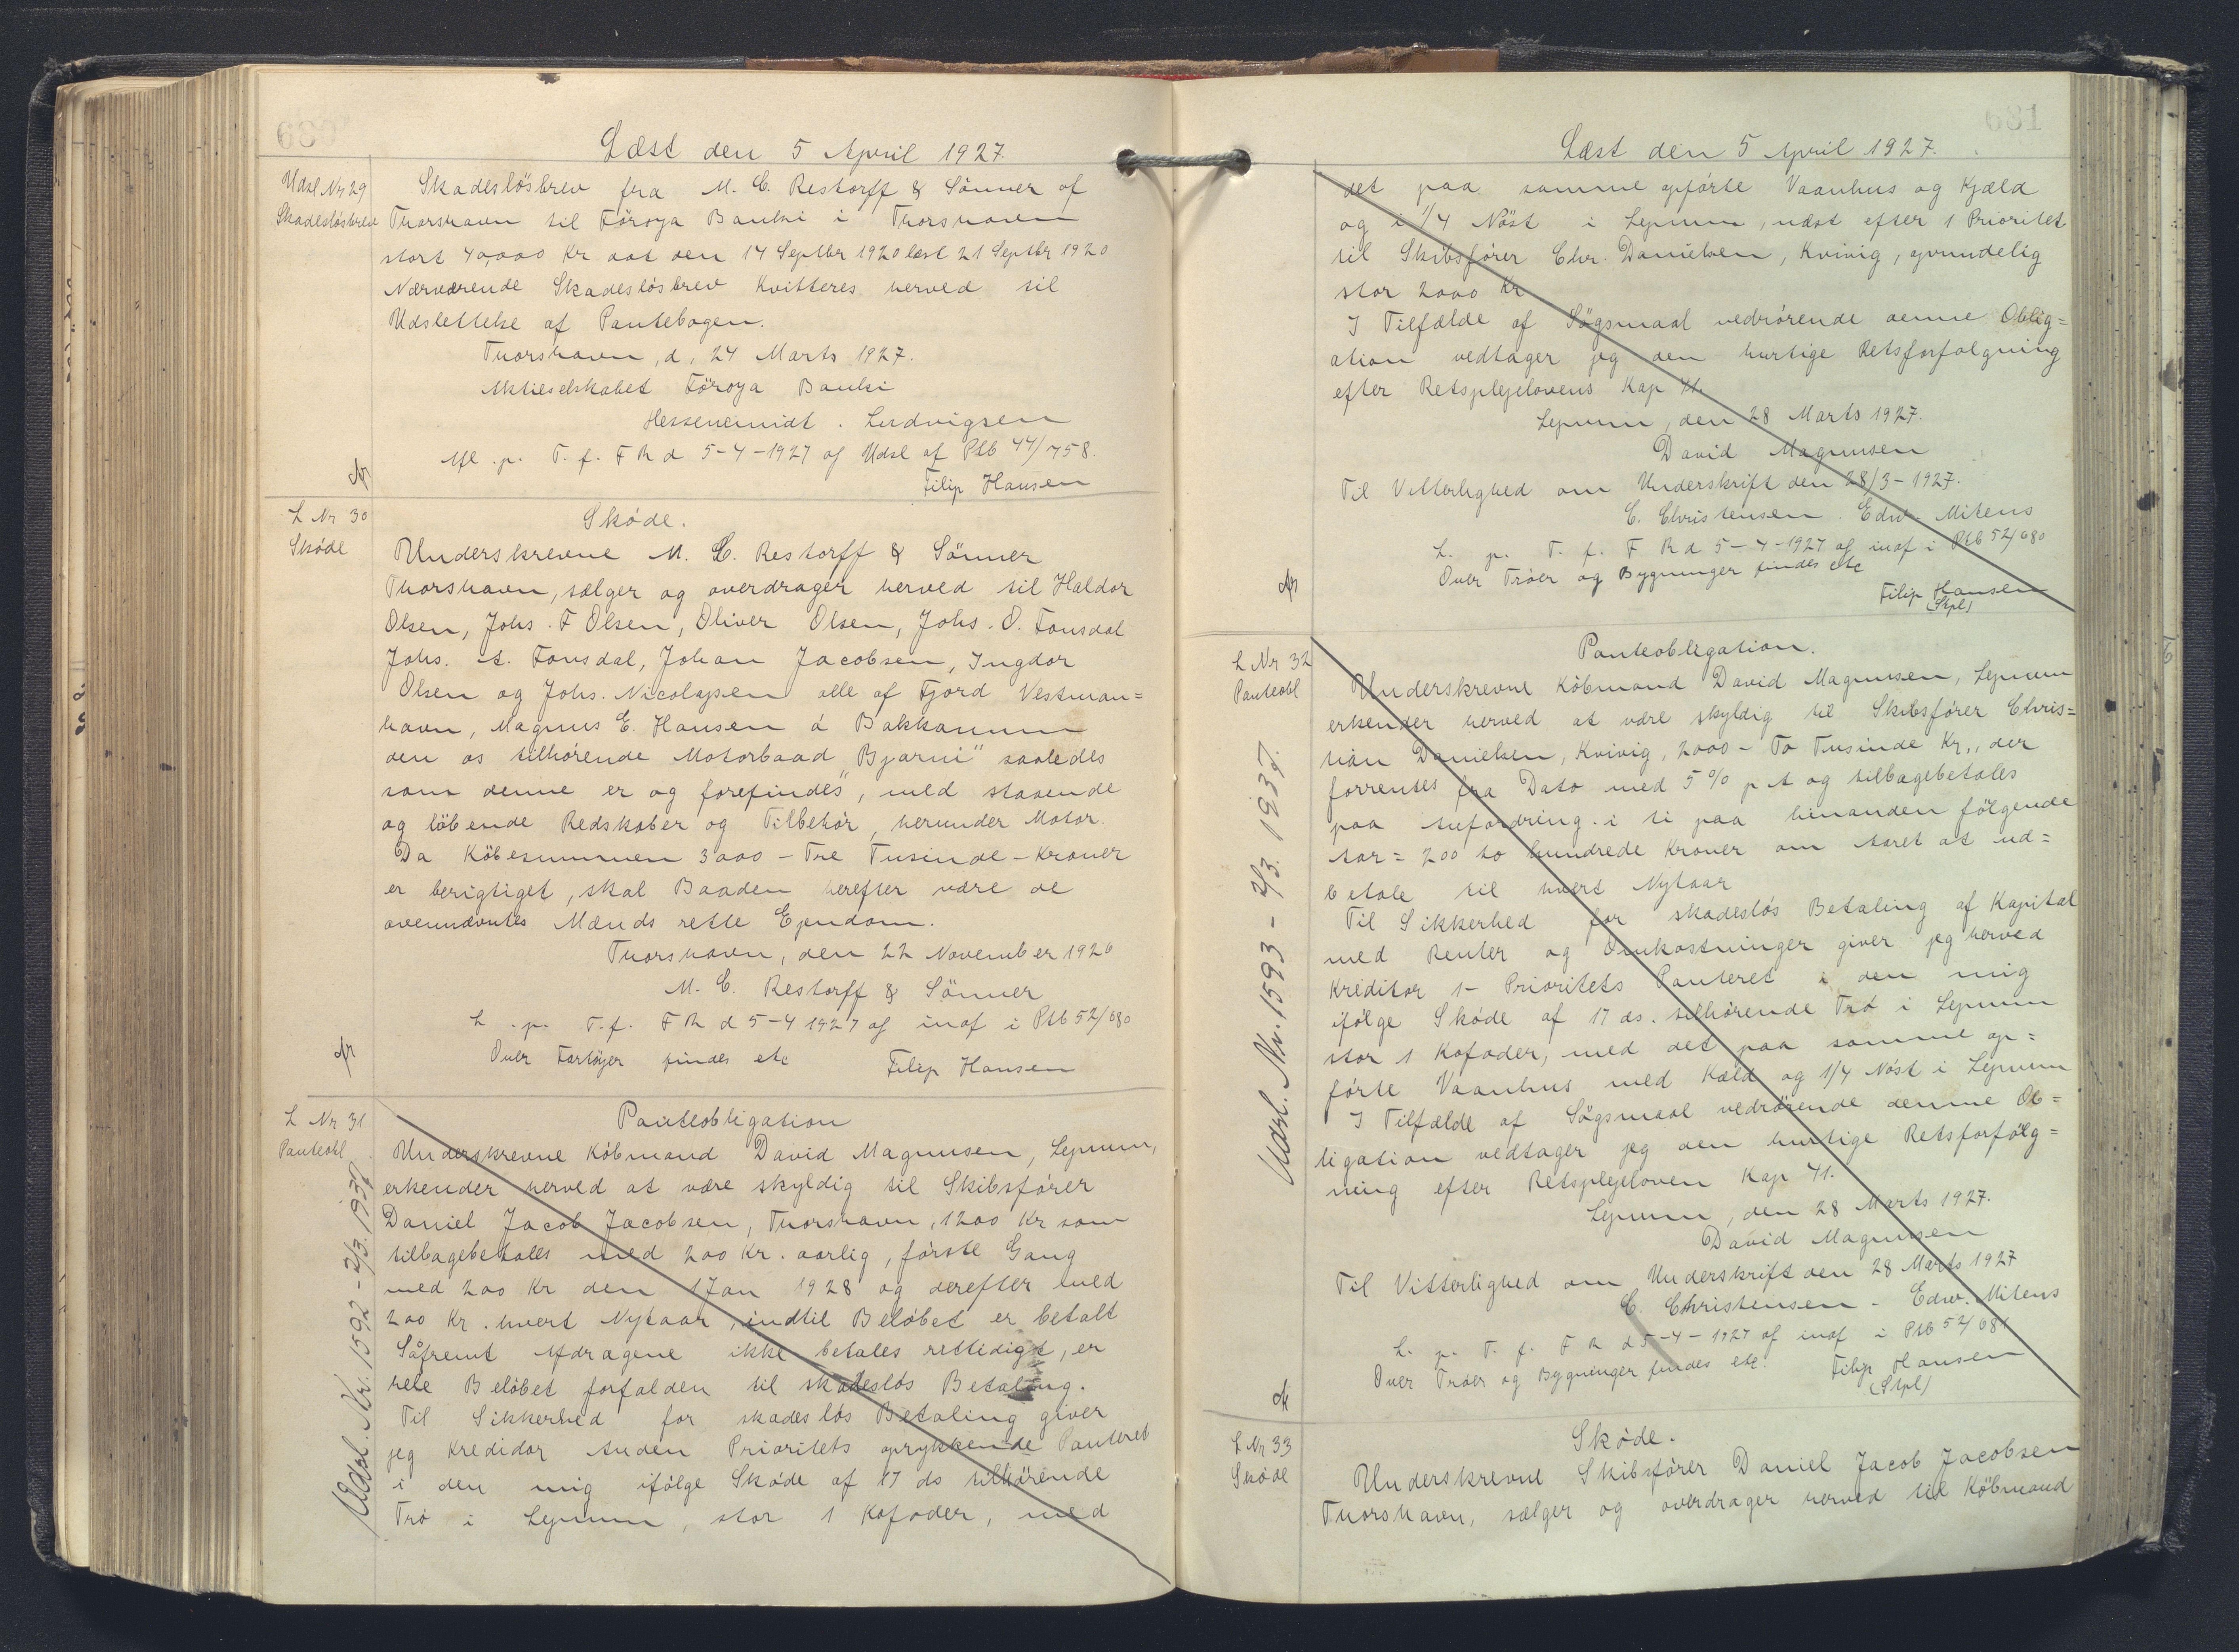 680
Læst den 5 April 1927.
Udsl Nr 29
Skadesløsbrev
Skadesløsbrev fra M. C. Restorff & Sönner of
Thorshavn til Föroya Banki i Thorshavn
stort 40,000 Kr dat den 14 Septbr 1920 læst 21 Septbr 1920
Nærværende Skadesløsbrev Kvitteres herved til
Udslettelse af Pantebogen.
Thorshavn, d. 24 Marts 1927.
Aktieselskabet Föroya Banki
. Ludvigsen
Afl. p. T. f. F R d 5-4-1927 og Udsl af Ptb 44/758.
Filip Hansen
L Nr 30
Skøde
Skøde.
Underskrevne M. C. Restorff & Sönner
Thorshavn, sælger og overdrager herved til Haldor
Olsen, Johs. F Olsen, Oliver Olsen, Johs. O. Fonsdal
Johs. A. Fonsdal, Johan Jacobsen, Ingdor
Olsen og Johs. Nicolajsen alle af Fjord Vestman=
havn, Magnus E. Hansen á Bakkanum
den os tilhørende Motorbaad „Bjarni" saaledes
som denne er og forefindes, med staaende
og løbende Redskaber og Tilbehör, herunder Motor.
Da Købesummen 3000 - Tre Tusinde - Kroner
er berigtiget, skal Baaden herefter være de
ovennævntes Mænds rette Ejendom.
Thorshavn, den 22 November 1926
M. C. Restorff & Sönner
L. p. T. f. F R d 5-4 1927 og indf i Ptb 52/680
Over Fartøjer findes etc
Filip Hansen
L Nr 31
Panteobl
Udsl. Nr. 1592 - 2/3. 1937
Panteobligation
Underskrevne Købmand David Magnusen, Lejnum,
erkender herved at være skyldig til Skibsfører
Daniel Jacob Jacobsen, Thorshavn, 1200 Kr som
tilbagebetales med 200 Kr. aarlig, første Gang
med 200 Kr den 1 Jan 1928 og derefter med
200 Kr. hvert Nytaar, indtil Beløbet er betalt
Såfremt Afdragene ikke betales rettidigt, er
hele Beløbet forfalden til skadesløs Betaling.
Til Sikkerhed for skadesløs Betaling giver
jeg Kreditor Anden Prioritets oprykkende Panteret
i den mig ifølge Skøde af 17 ds tilhørende
Trø i Lejnum, stor 1 Kofoder, med
681
Læst den 5 April 1927.
det paa samme opførte Vaanhus og Kjæld
og i 1/4 Nöst i Lejnum, næst efter 1 Prioritet
til Skibsfører Chr. Danielsen, Kvivig, oprundelig
stor 2000 Kr
I Tilfælde af Søgsmaal vedrørende denne Oblig=
ation vedtager jeg den hurtige Retsforfølgning
efter Retsplejelovens Kap 41.
Lejnum, den 28 Marts 1927.
David Magnusen
Til Vitterlighed om Underskrift den 28/3-1927.
C. Christensen. Edw. Mitens
L. p. T. f. F R d 5-4-1927 og indf i Ptb 52/680
Over Trøer og Bygninger findes etc
Filip Hansen
(Stpl)
L Nr 32
Panteobl
Udsl. Nr. 1593 - 2/3. 1937.
Panteobligation.
Underskrevne Købmand David Magnusen, Lejnum
erkender herved at være skyldig til Skibsfører Chris=
tian Danielsen, Kvivig, 2000 - To Tusinde Kr., der
forrentes fra Dato med 5% p A og tilbagebetales
paa Anfordring i ti paa hinanden følgende
Aar = 200 to hundrede Kroner om Aaret at ud=
betale til hvert Nytaar
Til Sikkerhed for skadesløs Betaling af Kapital
med Renter og Omkostninger giver jeg herved
Kreditor 1- Prioritets Panteret i den mig
ifølge Skøde af 17 ds. tilhørende Trø i Lejnum
stor 1 Kofoder, med det paa samme op=
førte Vaanhus med Kæld og 1/4 Nöst i Lejnum
I Tilfælde af Søgsmaal vedrørende denne Ob=
ligation vedtager jeg den hurtige Retsforfølg=
ning efter Retsplejeloven Kap 41.
Lejnum, den 28 Marts 1927.
David Magnusen
Til Vitterlighed om Underskrift den 28 Marts 1927
C. Christensen - Edw. Mitens
L. p. T. f. F R d 5-4-1927 og indf i Ptb 52/681
Over Trøer og Bygninger findes etc.
Filip Hansen
(Stpl)
L Nr 33
Skøde
Skøde.
Underskrevne Skibsfører Daniel Jacob Jacobsen
Thorshavn, sælger og overdrager herved til Købmand